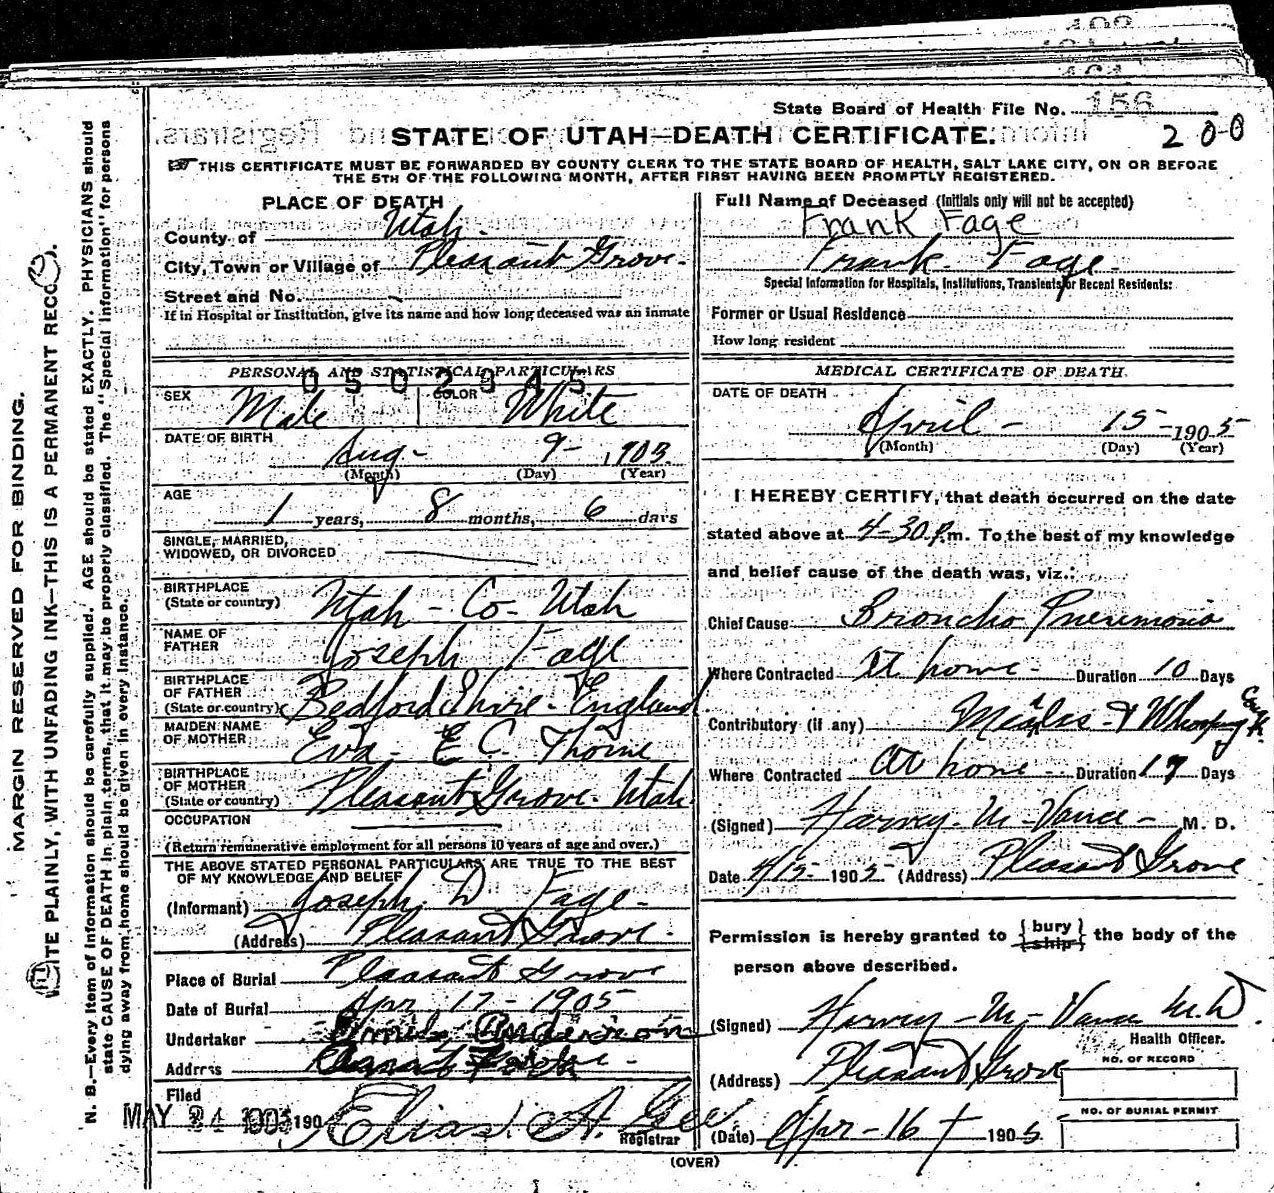 State Board of Health File No. 156
STATE OF UTAH—DEATH CERTIFICATE.
200
THIS CERTIFICATE MUST BE FORWARDED BY COUNTY CLERK TO THE STATE BOARD OF HEALTH, SALT LAKE CITY, ON OR BEFORE
THE 5TH OF THE FOLLOWING MONTH, AFTER FIRST HAVING BEEN PROMPTLY REGISTERED.
PLACE OF DEATH
County of Utah.
City, Town or Village of Pleasant Grove.
Street and No.
If in Hospital or Institution, give its name and how long deceased was an inmate
Full Name of Deceased (Initials only will not be accepted)
Frank Fage
Frank Fage.
Special Information for Hospitals, Institutions, Transients, or Recent Residents:
Former or Usual Residence
How long resident
PERSONAL AND STATISTICAL PARTICULARS
0502345
SEX Male COLOR White
DATE OF BIRTH Aug - 9 - 1903
(Month) (Day) (Year)
AGE
1 years, 8 months, 6 days
SINGLE, MARRIED,
WIDOWED, OR DIVORCED
BIRTHPLACE
(State or country) Utah - Co - Utah
NAME OF
FATHER Joseph Fage
BIRTHPLACE
OF FATHER
(State or country) Bedford Shire - England
MAIDEN NAME
OF MOTHER Eva E C. Thorne
BIRTHPLACE
OF MOTHER
(State or country) Pleasant Grove - Utah
OCCUPATION
(Return remunerative employment for all persons 10 years of age and over.)
THE ABOVE STATED PERSONAL PARTICULARS ARE TRUE TO THE BEST
OF MY KNOWLEDGE AND BELIEF
(Informant) Joseph D Fage -
(Address) Pleasant Grove.
Place of Burial Pleasant Grove
Date of Burial Apr 17 - 1905
Undertaker Anderson
Address
Filed
MAY 24 190
Elias A. Gee
Registrar
MEDICAL CERTIFICATE OF DEATH.
DATE OF DEATH
April - 15 - 1905
(Month) (Day) (Year)
I HEREBY CERTIFY, that death occurred on the date
stated above at 4-30 P.m. To the best of my knowledge
and belief cause of the death was, viz.:
Chief Cause Broncho Pneumonia
Where Contracted At home - Duration 10 Days
Contributory (if any) Measles & Whooping Cough
Where Contracted At home Duration 17 Days
(Signed) Harvey - M - Vance - M. D.
Date 4/15 - 1905. (Address) Pleasant Grove
Permission is hereby granted to {bury ship} the body of the
person above described.
(Signed) Harvey - M - Vance M.D.
Health Officer.
(Address) Pleasant Grove
NO. OF RECORD
NO. OF BURIAL PERMIT
(Date) Apr - 16 1905
(OVER)
MARGIN RESERVED FOR BINDING.
WRITE PLAINLY, WITH UNFADING INK—THIS IS A PERMANENT RECORD.
N. B.—Every item of information should be carefully supplied. AGE should be stated EXACTLY. PHYSICIANS should
state CAUSE OF DEATH in plain terms, that it may be properly classified. The "Special Information" for persons
dying away from home should be given in every instance.